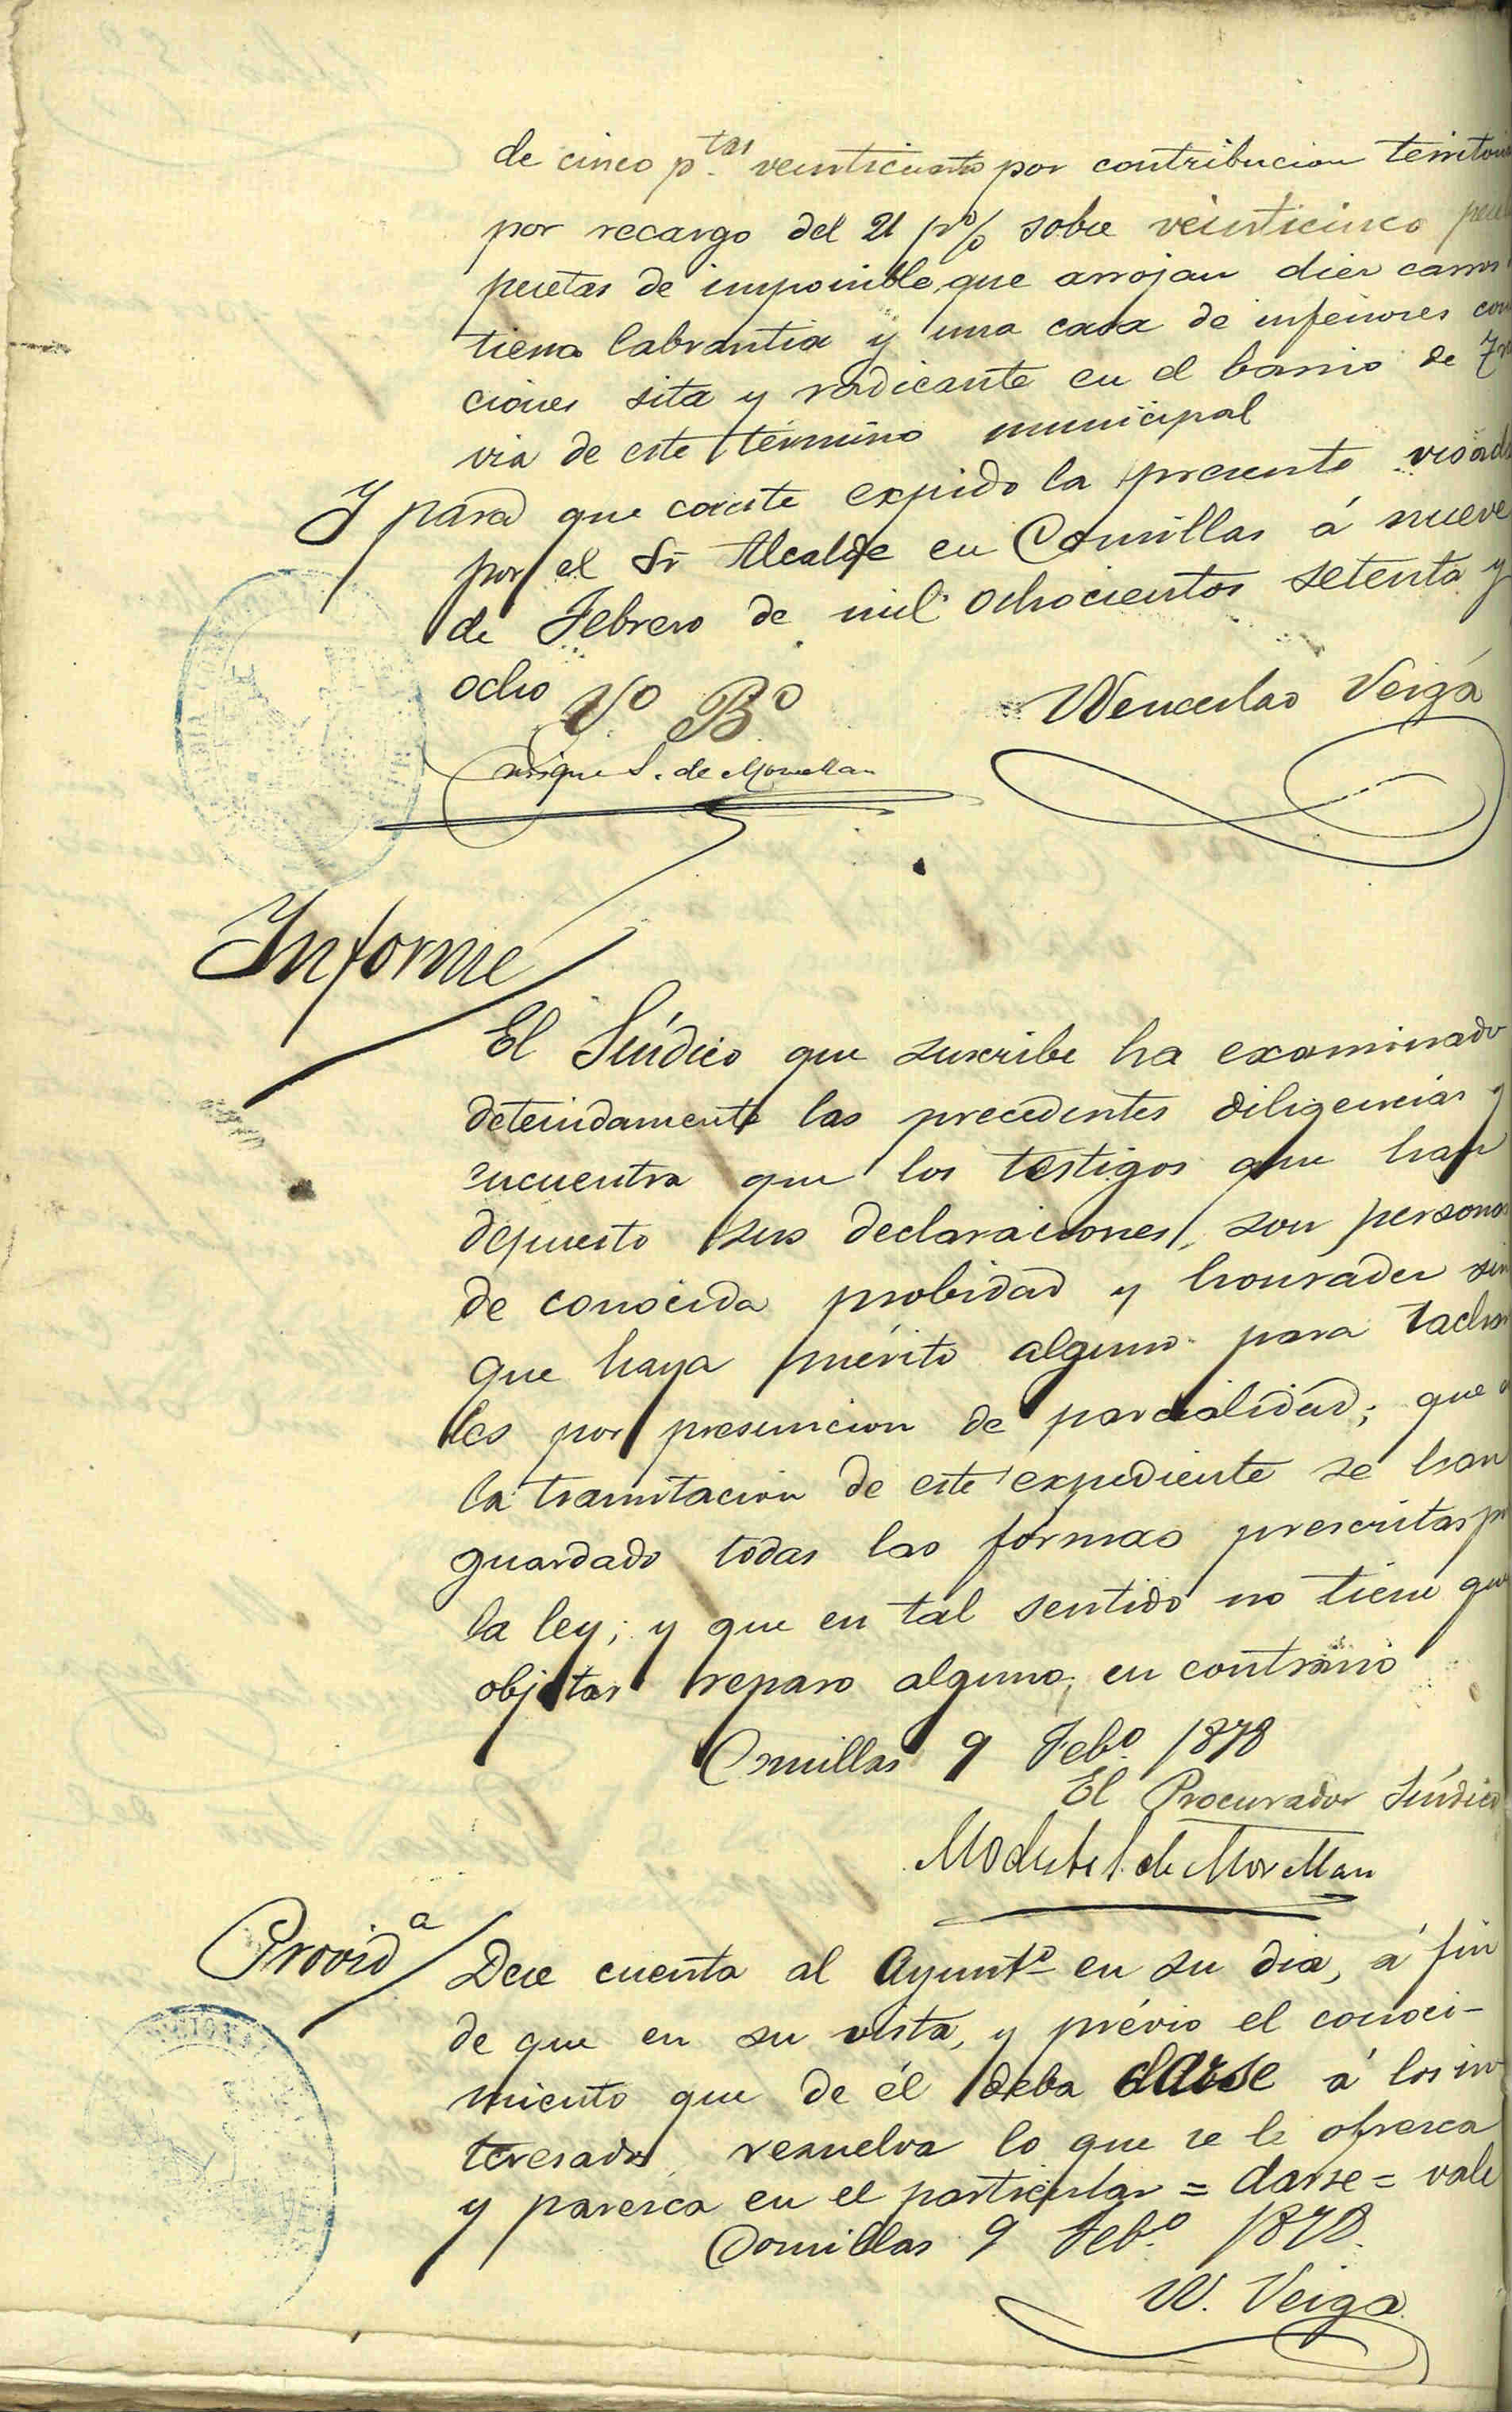 de cinco p.tas veinticuatro por contribucion territor
por recargo del 21 p% sobre veinticinco
pesetas de imponible que arrojan diez carros
tierra labrantia y una casa de inferiores con
ciones sita y radicante en el barrio de Tra
via de este término municipal
Y para que conste expido la presente visada
por el Sr Alcalde en Comillas á nueve
de Febrero de mil ochocientos setenta y
ocho
Vº Bº
Wenceslao Veiga
Enrique S. de Movellan
Informe
El Síndico que suscribe ha examinado
detenidamente las precedentes diligencias y
encuentra que los testigos que han
depuesto sus declaraciones, son personas
de conocida probidad y honradez sin
que haya mérito alguno para tachar
les por presuncion de parcialidad; que
la tramitacion de este expediente se han
guardado todas las formas prescritas p
la ley; y que en tal sentido no tiene que
objetar reparo alguno en contrario
Comillas 9 Feb.º 1878
El Procurador Síndico
Modesto S. de Movellan
Provid.a
Dese cuenta al Ayunt.º en su dia, á fin
de que en su vista, y prévio el conoci-
miento que de él deba darse á los in
teresados resuelva lo que se le ofrezca
y paresca en el particular = darse = vale
Comillas 9 Feb.º 1878.
W. Veiga